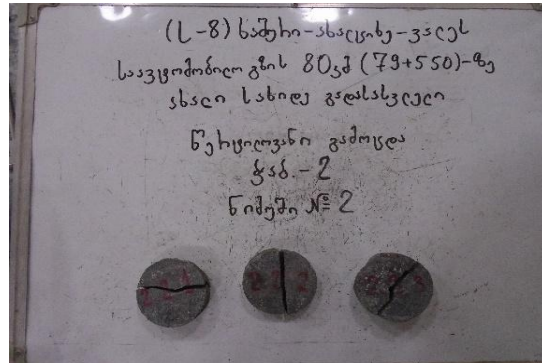 (ს-8) ხაშური-ახალციხე-ვალეს
საავტომობილო გზის 80კმ (79+550)-ზე
ახალი სახიდე გადასასვლელი
წერტილოვანი გამოცდა
ჭაბ. - 2
ნიმუში № 2